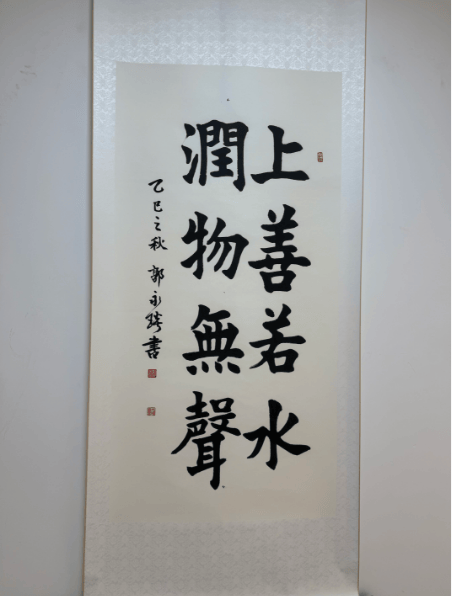 上善若水
潤物無聲
乙巳之秋 郭永琇書